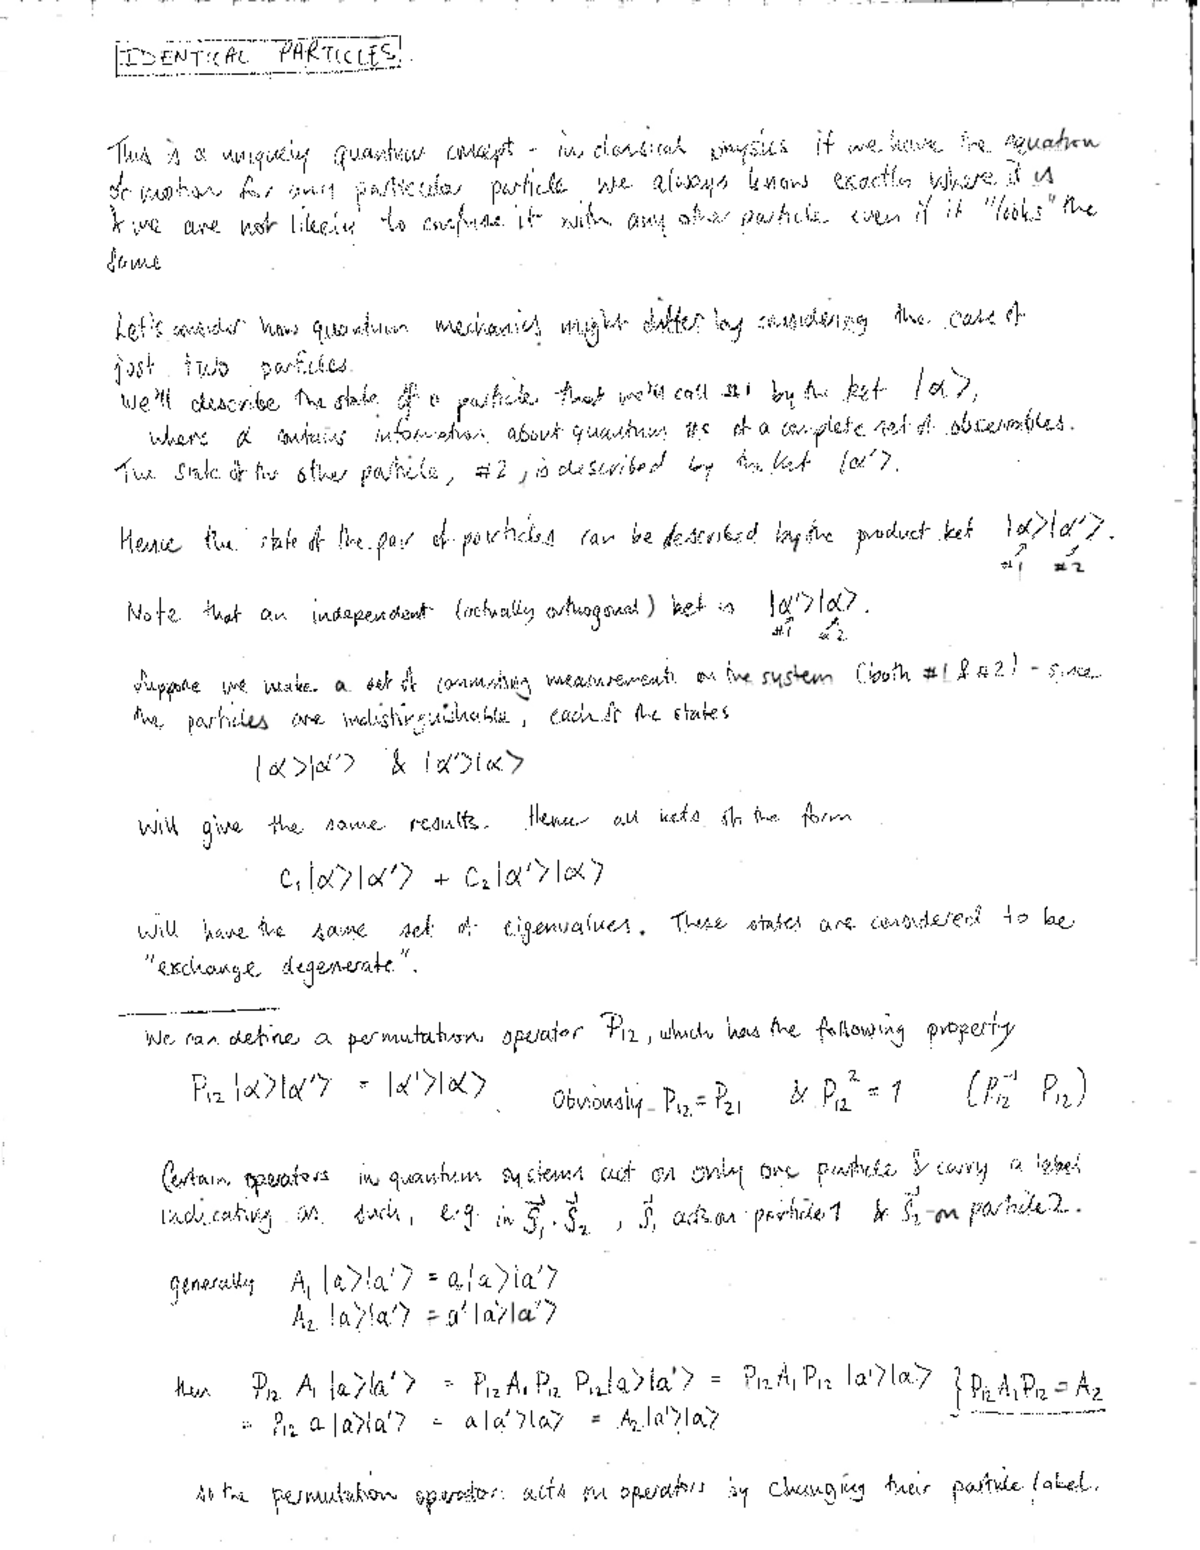 IDENTICAL PARTICLES
This is a uniquely quantum concept - in classical physics if we have the equation
of motion for any particular particle we always know exactly where it is
& we are not likely to confuse it with any other particle even if it "looks" the
same
Let's consider how quantum mechanics might differ by considering the case of
just two particles.
We'll describe the state of a particle that we'll call #1 by the ket |α>,
where α contains information about quantum #s of a complete set of observables.
The state of the other particle, #2, is described by the ket |α'>.
Hence the state of the pair of particles can be described by the product ket |α>|α'>.
#1 #2
Note that an independent (actually orthogonal) ket is |α'>|α>.
#1 #2
Suppose we make a set of commuting measurements on the system (both #1 & #2) - since
the particles are indistinguishable, each of the states
|α>|α'> & |α'>|α>
will give the same results. Hence all kets of the form
C₁|α>|α'> + C₂|α'>|α>
will have the same set of eigenvalues. These states are considered to be
"exchange degenerate".
We can define a permutation operator P₁₂, which has the following property
P₁₂|α>|α'> = |α'>|α> Obviously P₁₂ = P₂₁ & P₁₂² = 1 (P₁₂⁻¹ P₁₂)
Certain operators in quantum systems act on only one particle & carry a label
indicating as such, e.g. in S⃗₁·S⃗₂, S⃗₁ acts on particle 1 & S⃗₂ on particle 2.
generally A₁|a>|a'> = a|a>|a'>
A₂|a>|a'> = a'|a>|a'>
then P₁₂ A₁|a>|a'> = P₁₂A₁P₁₂ P₁₂|a>|a'> = P₁₂A₁P₁₂ |a'>|a> } P₁₂A₁P₁₂ = A₂
= P₁₂ a|a>|a'> = a|a'>|a> = A₂|a'>|a>
so the permutation operator acts on operators by changing their particle label.